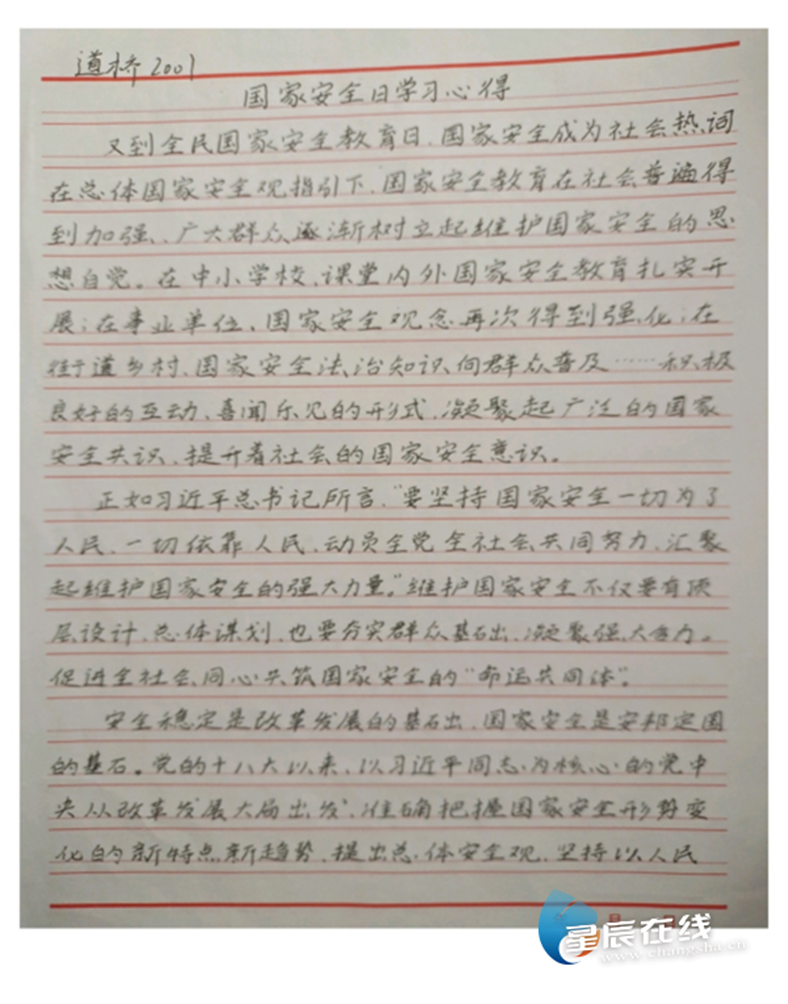 道桥2001
国家安全日学习心得
又到全民国家安全教育日、国家安全成为社会热词
在总体国家安全观指引下、国家安全教育在社会普遍得
到加强、广大群众逐渐树立起维护国家安全的思
想自觉。在中小学校、课堂内外国家安全教育扎实开
展；在事业单位、国家安全观念再次得到强化；在
街道乡村、国家安全法治知识向群众普及……积极
良好的互动、喜闻乐见的形式、凝聚起广泛的国家
安全共识、提升着社会的国家安全意识。
正如习近平总书记所言，“要坚持国家安全一切为了
人民、一切依靠人民、动员全党全社会共同努力、汇聚
起维护国家安全的强大力量。”维护国家安全不仅要有顶
层设计、总体谋划、也要夯实群众基础、凝聚强大合力。
促进全社会同心共筑国家安全的“命运共同体”。
安全稳定是改革发展的基础、国家安全是安邦定国
的基石。党的十八大以来、以习近平同志为核心的党中
央从改革发展大局出发、准确把握国家安全形势变
化的新特点新趋势、提出总体安全观、坚持以人民
星辰在线
www.changsha.cn